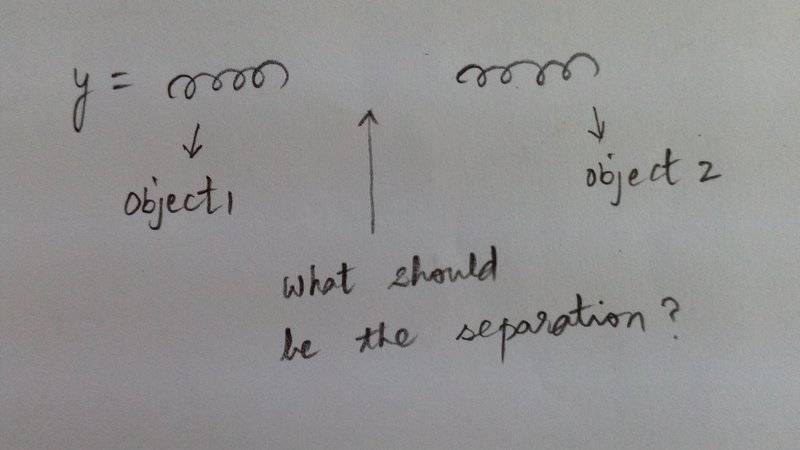 y =
object1
object 2
what should
be the separation?